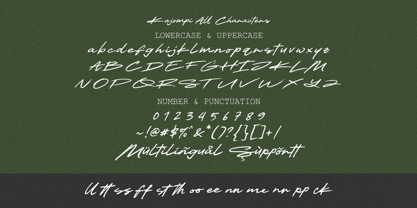 Kajompi All Characters
LOWERCASE & UPPERCASE
abcdefghijklmnopqrstuvwxyz
ABCDEFGHIJKLM
NOPQRSTUVWXYZ
NUMBER & PUNCTUATION
0123456789
~!@#$%^&*()?{}[]+/
Mültilingüäl Şüppörtt
tt ss ff st th oo ee nn mc nr pp ck